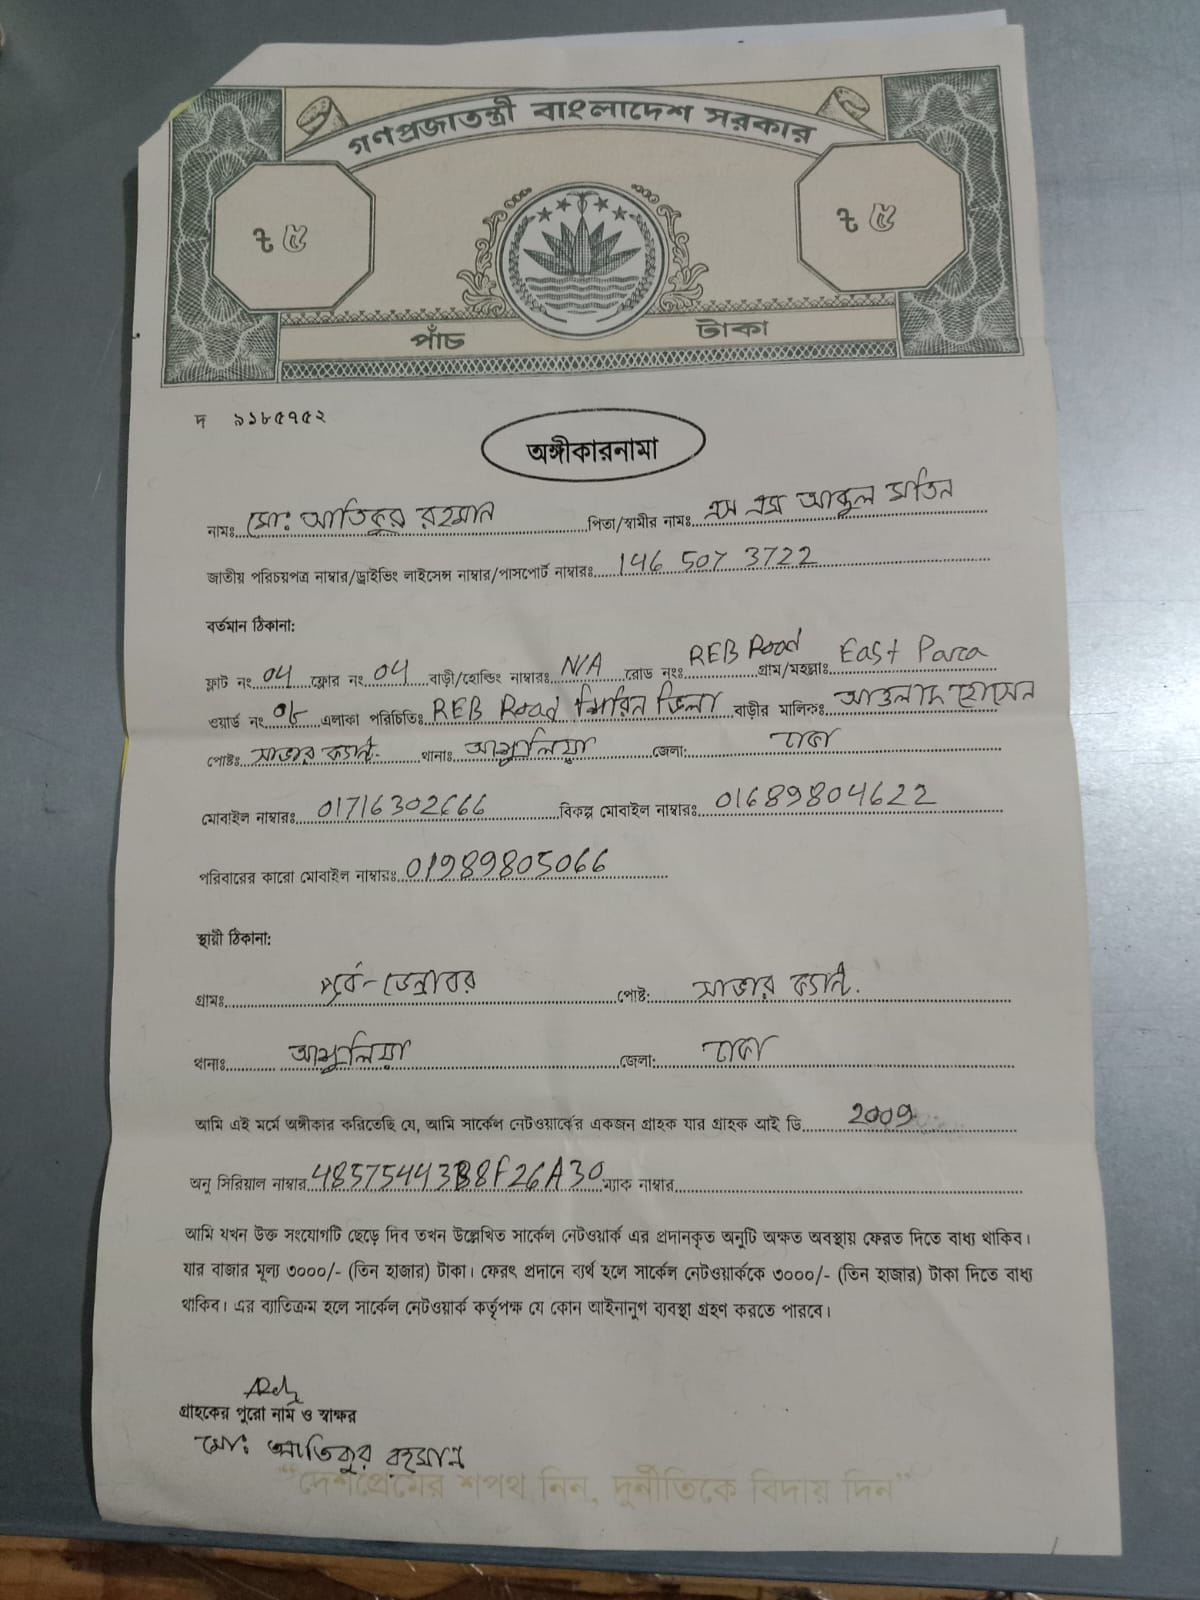 গণপ্রজাতন্ত্রী বাংলাদেশ সরকার
৳ ৫
৳ ৫
পাঁচ টাকা
দ ৯১৮৫৭৫২
অঙ্গীকারনামা
নামঃ মোঃ আতিকুর রহমান পিতা/স্বামীর নামঃ এস এম আব্দুল মতিন
জাতীয় পরিচয়পত্র নাম্বার/ড্রাইভিং লাইসেন্স নাম্বার/পাসপোর্ট নাম্বারঃ 146 507 3722
বর্তমান ঠিকানা:
ফ্লাট নং 04 ফ্লোর নং 04 বাড়ী/হোল্ডিং নাম্বারঃ N/A রোড নংঃ REB Road গ্রাম/মহল্লাঃ East Para
ওয়ার্ড নং এলাকা পরিচিতিঃ REB Road শিরিন ভিলা বাড়ীর মালিকঃ আওলাদ হোসেন
পোষ্টঃ সাভার ক্যান্ট. থানাঃ আশুলিয়া জেলা: ঢাকা
মোবাইল নাম্বারঃ 01716302666 বিকল্প মোবাইল নাম্বারঃ 01689804622
পরিবারের কারো মোবাইল নাম্বারঃ 01989805066
স্থায়ী ঠিকানা:
গ্রামঃ পূর্ব-ডেন্ডাবর পোষ্ট: সাভার ক্যান্ট.
থানাঃ আশুলিয়া জেলা: ঢাকা
আমি এই মর্মে অঙ্গীকার করিতেছি যে, আমি সার্কেল নেটওয়ার্কের একজন গ্রাহক যার গ্রাহক আই ডি 2009
অনু সিরিয়াল নাম্বার 485754443B8F26A30 ম্যাক নাম্বার
আমি যখন উক্ত সংযোগটি ছেড়ে দিব তখন উল্লেখিত সার্কেল নেটওয়ার্ক এর প্রদানকৃত অনুটি অক্ষত অবস্থায় ফেরত দিতে বাধ্য থাকিব।
যার বাজার মূল্য ৩০০০/- (তিন হাজার) টাকা। ফেরৎ প্রদানে ব্যর্থ হলে সার্কেল নেটওয়ার্ককে ৩০০০/- (তিন হাজার) টাকা দিতে বাধ্য
থাকিব। এর ব্যাতিক্রম হলে সার্কেল নেটওয়ার্ক কর্তৃপক্ষ যে কোন আইনানুগ ব্যবস্থা গ্রহণ করতে পারবে।
গ্রাহকের পুরো নাম ও স্বাক্ষর
মোঃ আতিকুর রহমান
“দেশপ্রেমের শপথ নিন, দুর্নীতিকে বিদায় দিন”